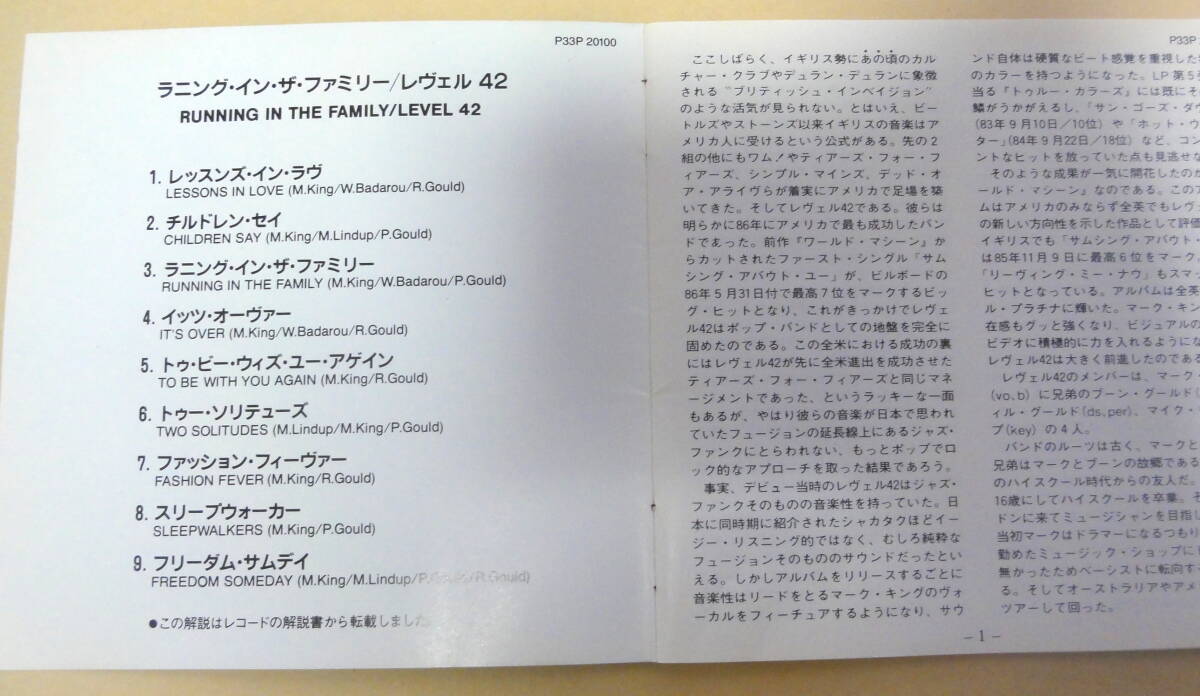 P33P 20100
ラニング・イン・ザ・ファミリー/レヴェル 42
RUNNING IN THE FAMILY/LEVEL 42
1. レッスンズ・イン・ラヴ
LESSONS IN LOVE (M.King/W.Badarou/R.Gould)
2. チルドレン・セイ
CHILDREN SAY (M.King/M.Lindup/P.Gould)
3. ラニング・イン・ザ・ファミリー
RUNNING IN THE FAMILY (M.King/W.Badarou/P.Gould)
4. イッツ・オーヴァー
IT'S OVER (M.King/W.Badarou/R.Gould)
5. トゥ・ビー・ウィズ・ユー・アゲイン
TO BE WITH YOU AGAIN (M.King/R.Gould)
6. トゥー・ソリテューズ
TWO SOLITUDES (M.Lindup/M.King/P.Gould)
7. ファッション・フィーヴァー
FASHION FEVER (M.King/R.Gould)
8. スリープウォーカー
SLEEPWALKERS (M.King/P.Gould)
9. フリーダム・サムデイ
FREEDOM SOMEDAY (M.King/M.Lindup/P.Gould/R.Gould)
●この解説はレコードの解説書から転載しました
ここしばらく、イギリス勢にあの頃のカル
チャー・クラブやデュラン・デュランに象徴
される“ブリティッシュ・インベイジョン”
のような活気が見られない。とはいえ、ビー
トルズやストーンズ以来イギリスの音楽はア
メリカ人に受けるという公式がある。先の2
組の他にもワム！やティアーズ・フォー・フ
ィアーズ、シンプル・マインズ、デッド・オ
ア・アライヴらが着実にアメリカで足場を築
いてきた。そしてレヴェル42である。彼らは
明らかに86年にアメリカで最も成功したバン
ドであった。前作『ワールド・マシーン』か
らカットされたファースト・シングル「サム
シング・アバウト・ユー」が、ビルボードの
86年5月31日付で最高7位をマークするビッ
グ・ヒットとなり、これがきっかけでレヴェ
ル42はポップ・バンドとしての地盤を完全に
固めたのである。この全米における成功の裏
にはレヴェル42が先に全米進出を成功させた
ティアーズ・フォー・フィアーズと同じマネ
ージメントであった、というラッキーな一面
もあるが、やはり彼らの音楽が日本で思われ
ていたフュージョンの延長線上にあるジャズ・
ファンクにとらわれない、もっとポップでロ
ック的なアプローチを取った結果であろう。
事実、デビュー当時のレヴェル42はジャズ・
ファンクそのものの音楽性を持っていた。日
本に同時期に紹介されたシャカタクほどイー
ジー・リスニング的ではなく、むしろ純粋な
フュージョンそのもののサウンドだったとい
える。しかしアルバムをリリースするごとに
音楽性はリードをとるマーク・キングのヴォ
ーカルをフィーチュアするようになり、サウ
－1－
P33P
ンド自体は硬質なビート感覚を重視した
のカラーを持つようになった。LP第5
当る『トゥルー・カラーズ』には既にそ
鱗がうかがえるし、「サン・ゴーズ・ダウ
(83年9月10日／10位) や「ホット・ウ
ター」(84年9月22日／18位) など、コン
ントなヒットを放っていた点も見逃せな
そのような成果が一気に開花したのが
ールド・マシーン』なのである。このア
ムはアメリカのみならず全英でもレヴェ
の新しい方向性を示した作品として評価
イギリスでも「サムシング・アバウト・
は85年11月9日に最高6位をマーク。
「リーヴィング・ミー・ナウ」もスマ
ヒットとなっている。アルバムは全英
ル・プラチナに輝いた。マーク・キン
在感もグッと強くなり、ビジュアルの
ビデオに積極的に力を入れるようにな
レヴェル42は大きく前進したのである
レヴェル42のメンバーは、マーク・
(vo,b) に兄弟のブーン・グールド(
ィル・グールド(ds,per)、マイク・
プ(key) の4人。
バンドのルーツは古く、マークと
兄弟はマークとブーンの故郷である
のハイスクール時代からの友人だ。
16歳にしてハイスクールを卒業。そ
ドンに来てミュージシャンを目指し
当初マークはドラマーになるつもり
勤めたミュージック・ショップに
無かったためベーシストに転向す
る。そしてオーストラリアやアメ
ツアーして回った。